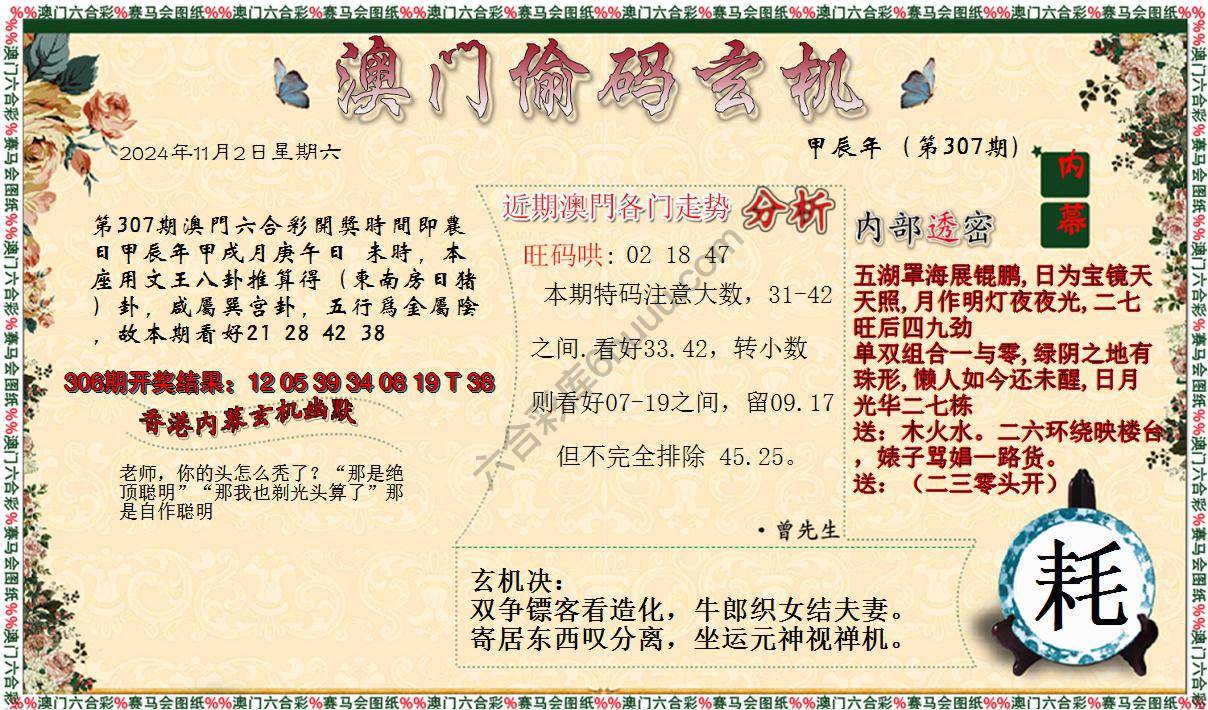 %%澳门六合彩%赛马会图纸%%澳门六合彩%赛马会图纸%%澳门六合彩%赛马会图纸%%澳门六合彩%赛马会图纸%%澳门六合彩%赛马会图纸%%澳门六合彩%赛马会图纸%%
澳门偷码玄机
2024年11月2日星期六
甲辰年（第307期）
内
幕
第307期澳門六合彩開獎時間即農
日甲辰年甲戌月庚午日 未時，本
座用文王八卦推算得（東南房日猪
）卦，咸屬巽宫卦，五行爲金屬陰
，故本期看好21 28 42 38
306期开奖结果：12 05 39 34 08 19 T 38
香港内幕玄机幽默
老师，你的头怎么秃了？“那是绝
顶聪明”“那我也剃光头算了”那
是自作聪明
近期澳門各门走势 分析
旺码哄：02 18 47
本期特码注意大数，31-42
之间.看好33.42，转小数
则看好07-19之间，留09.17
但不完全排除 45.25。
·曾先生
内部透密
五湖罩海展锟鹏,日为宝镜天
天照,月作明灯夜夜光,二七
旺后四九劲
单双组合一与零,绿阴之地有
珠形,懒人如今还未醒,日月
光华二七栋
送：木火水。二六环绕映楼台
，婊子骂娼一路货。
送：（二三零头开）
玄机决：
双争镖客看造化，牛郎织女结夫妻。
寄居东西叹分离，坐运元神视禅机。
耗
%%澳门六合彩%赛马会图纸%%澳门六合彩%赛马会图纸%%澳门六合彩%赛马会图纸%%澳门六合彩%赛马会图纸%%澳门六合彩%赛马会图纸%%澳门六合彩%赛马会图纸%%